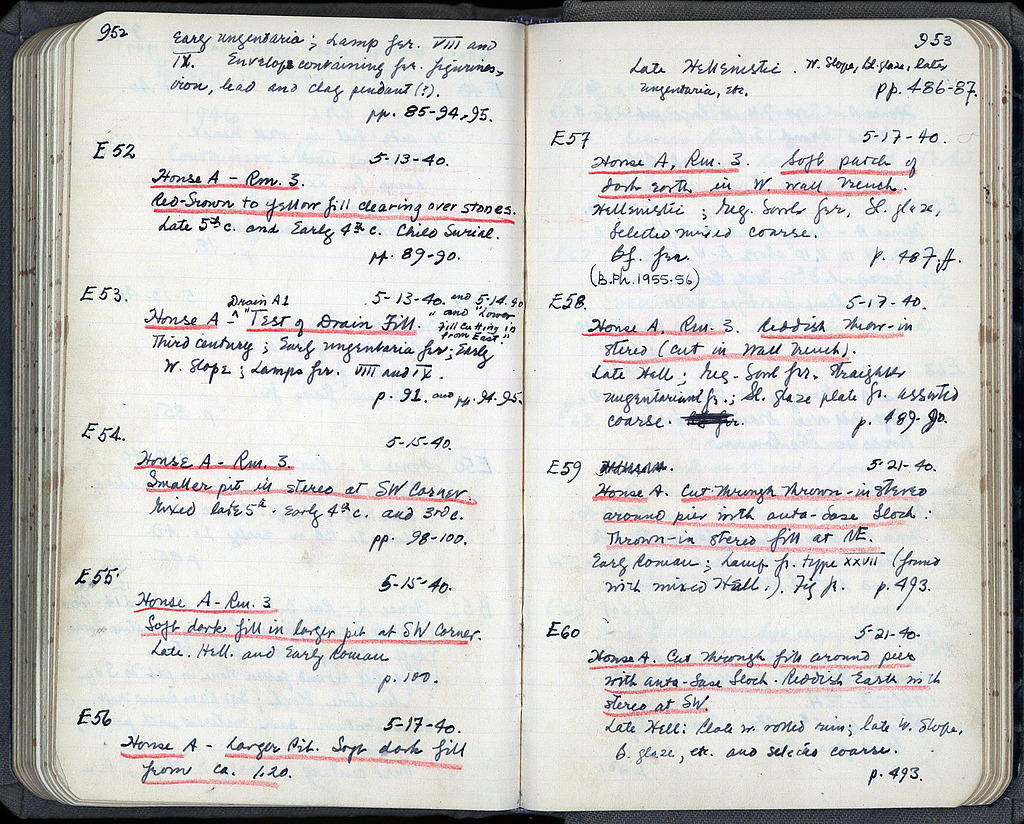 952
Early ungentaria; Lamp fr. VIII and
IX. Envelope containing fr. figurines,
iron, lead and clay pendant (?).
pp. 85-94, 95.
E52 5-13-40.
House A - Rm. 3.
Red-brown to yellow fill clearing over stones.
Late 5th c. and Early 4th c. Child burial.
pp. 89-90.
E53. Drain A1 5-13-40. and 5-14-40
House A - ^ "Test of Drain Fill " and "Lower
fill cutting in
from East"
Third century; Early ungentaria fr; Early
W. Slope; Lamps fr. VIII and IX.
p. 91. and pp. 94-95.
E54. 5-15-40.
House A - Rm. 3.
Smaller pit in stereo at SW Corner.
Mixed late 5th - Early 4th c. and 3rd c.
pp. 98-100.
E55 5-15-40.
House A - Rm. 3
Soft dark fill in larger pit at SW Corner.
Late. Hell. and Early Roman
p. 100.
E56 5-17-40.
House A - Larger Pit. Soft dark fill
from ca. 1.20.
953
Late Hellenistic. W. Slope, bl. glaze, later
ungentaria, etc. pp. 486-87.
E57 5-17-40.
House A, Rm. 3. Soft patch of
dark earth in W. wall trench.
Hellenistic; Meg. bowls fr., bl. glaze,
selected mixed coarse.
Bf. fr. p. 487, ff.
(B.Ph. 1955-56)
E58. 5-17-40.
House A, Rm. 3. Reddish thrown-in
stereo (cut in wall trench).
Late Hell; Meg. bowl fr. straighter
ungentarium fr.; bl. glaze plate fr. assorted
coarse. p. 489-90.
E59 5-21-40.
House A. Cut through thrown-in stereo
around pier with anta-base block:
Thrown-in stereo fill at NE.
Early Roman; Lamp fr. type XXVII (found
with mixed Hell.). Fig fr. p. 493.
E60 5-21-40.
House A. Cut through fill around pier
with anta-base block. Reddish Earth with
stereo at SW.
Late Hell: w. rolled rim; late W. Slope,
B. glaze, etc. and selected coarse.
p. 493.